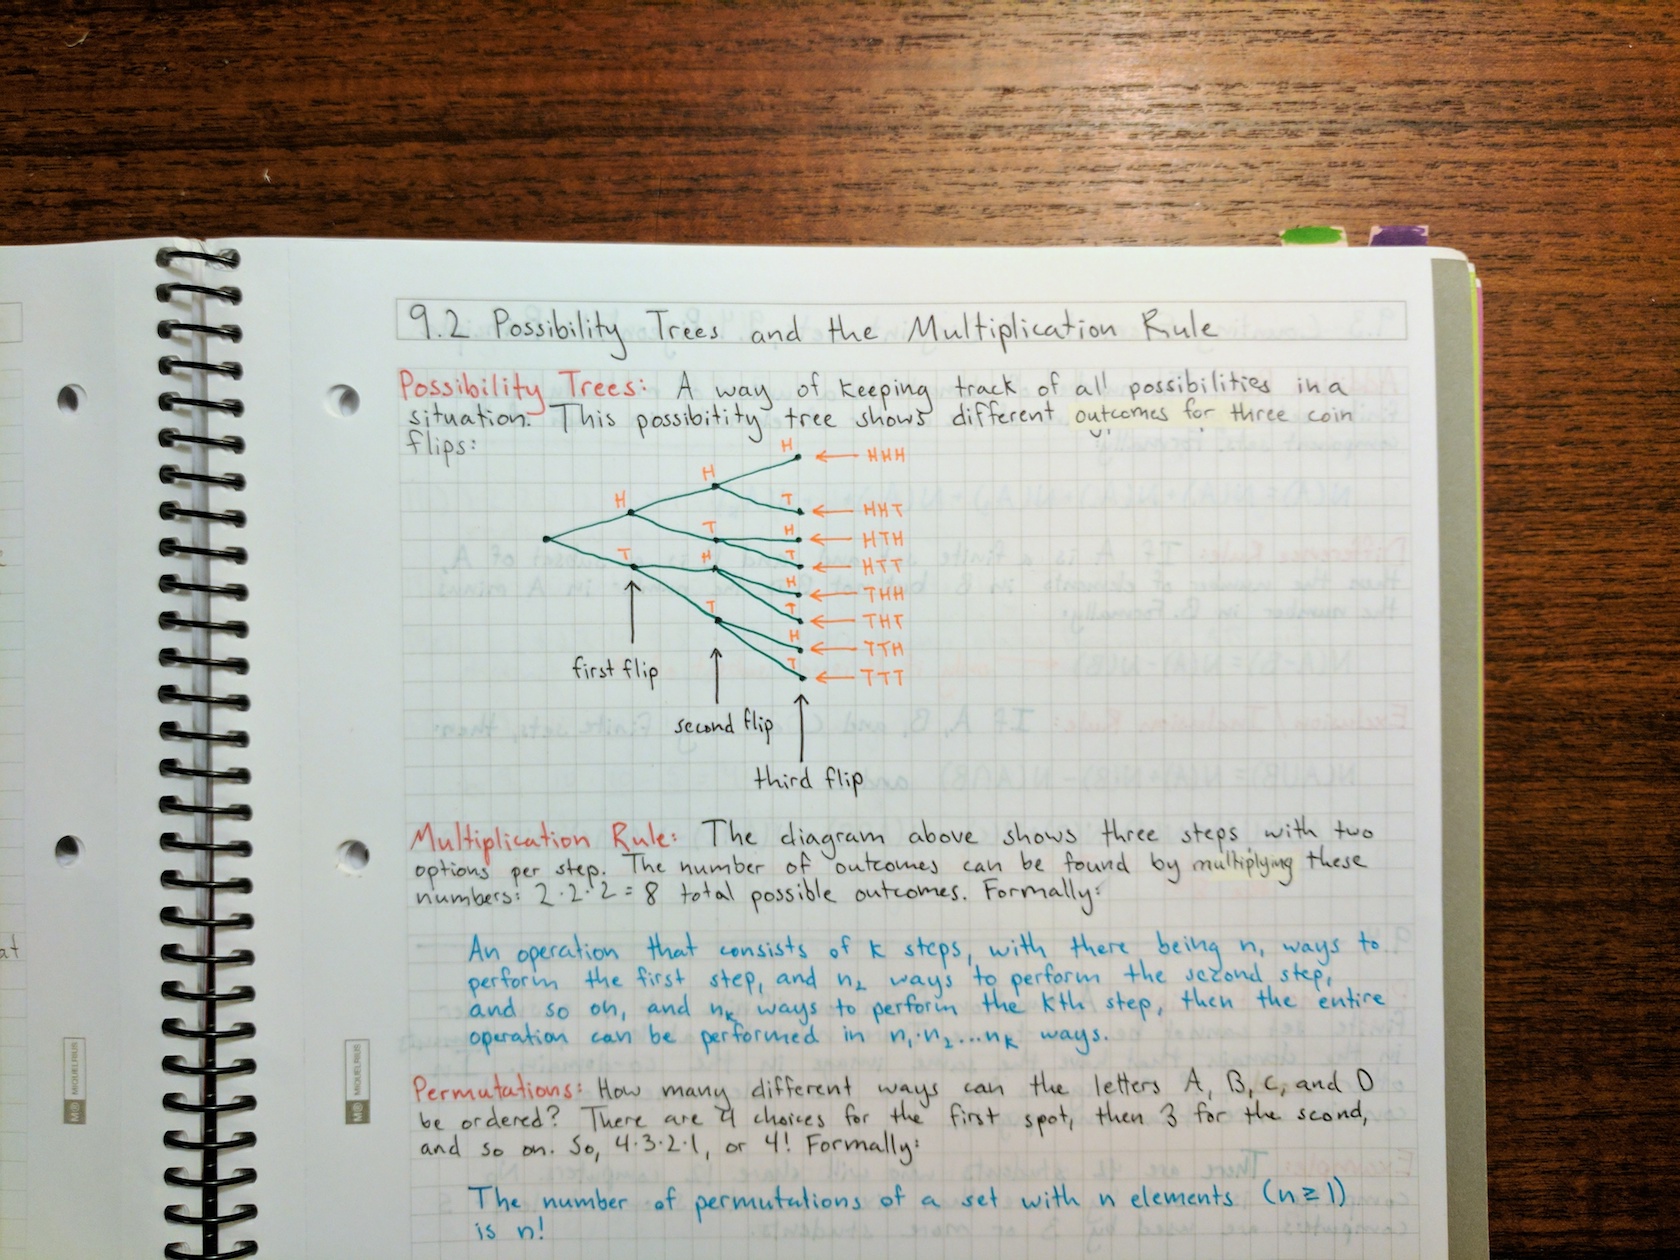 9.2 Possibility Trees and the Multiplication Rule
Possibility Trees: A way of keeping track of all possibilities in a
situation. This possibility tree shows different outcomes for three coin
flips:
H
H
H
T
T
H
T
T
H
H
T
T
H
T
← HHH
← HHT
← HTH
← HTT
← THH
← THT
← TTH
← TTT
first flip
second flip
third flip
Multiplication Rule: The diagram above shows three steps with two
options per step. The number of outcomes can be found by multiplying these
numbers: 2·2·2 = 8 total possible outcomes. Formally:
An operation that consists of k steps, with there being n₁ ways to
perform the first step, and n₂ ways to perform the second step,
and so on, and nₖ ways to perform the kth step, then the entire
operation can be performed in n₁·n₂...nₖ ways.
Permutations: How many different ways can the letters A, B, C, and D
be ordered? There are 4 choices for the first spot, then 3 for the scond,
and so on. So, 4·3·2·1, or 4! Formally:
The number of permutations of a set with n elements (n≥1)
is n!
at
MIQUELRIUS
MIQUELRIUS